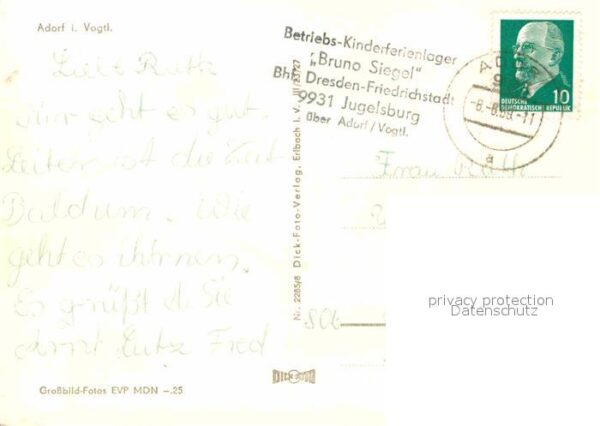 Adorf i. Vogtl.
Betriebs-Kinderferienlager
„Bruno Siegel"
Bhf. Dresden-Friedrichstadt
9931 Jugelsburg
über Adorf/Vogtl.
DEUTSCHE
DEMOKRATISCHE REPUBLIK
10
Liebe Ruth
Mir geht es gut
Leider ist die Zeit
Bald um. Wie
geht es ihnen.
Es grüßt d. Sie
Lutz Fred
Frau
Nr. 2285/8 Dick-Foto-Verlag, Erlbach i. V.
privacy protection
Datenschutz
DICK FOTO
Großbild-Fotos EVP MDN –.25